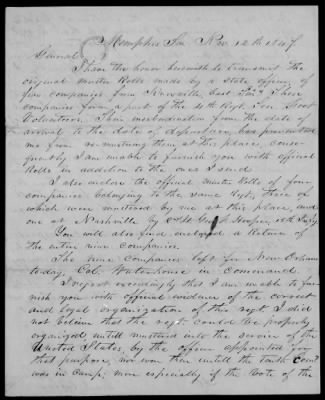 Memphis Ten Nov. 12th 1847
General,
I have the honor herewith to transmit the
original muster Rolls made by a state officer, of
five companies from Knoxville East Tenn. These
companies form a part of the 4th Regt. Ten Foot
Volunteers. I am from the date of
arrival to the date of departure, has prevented
me from re-mustering them at this place, conse-
quently I am unable to furnish you with official
Rolls in addition to the ones I send
I also enclose the official Muster Rolls of four
companies belonging to the same Regt, three of
which were mustered by me at this place, and
one at Nashville by
You will also find enclosed a Return of
the entire nine companies.
The nine Companies left for New Orleans
today, Col. Waterhouse in Command.
I regret exceedingly that I am unable to fur-
nish you with official evidence of the correct
and legal organization of this regt. I did
not believe that the regt. could be properly
organized untill mustered into the service of the
United States, by the officer appointed for
that purpose, nor even then untill the tenth Comp
was in camp; more especially if the vote of the